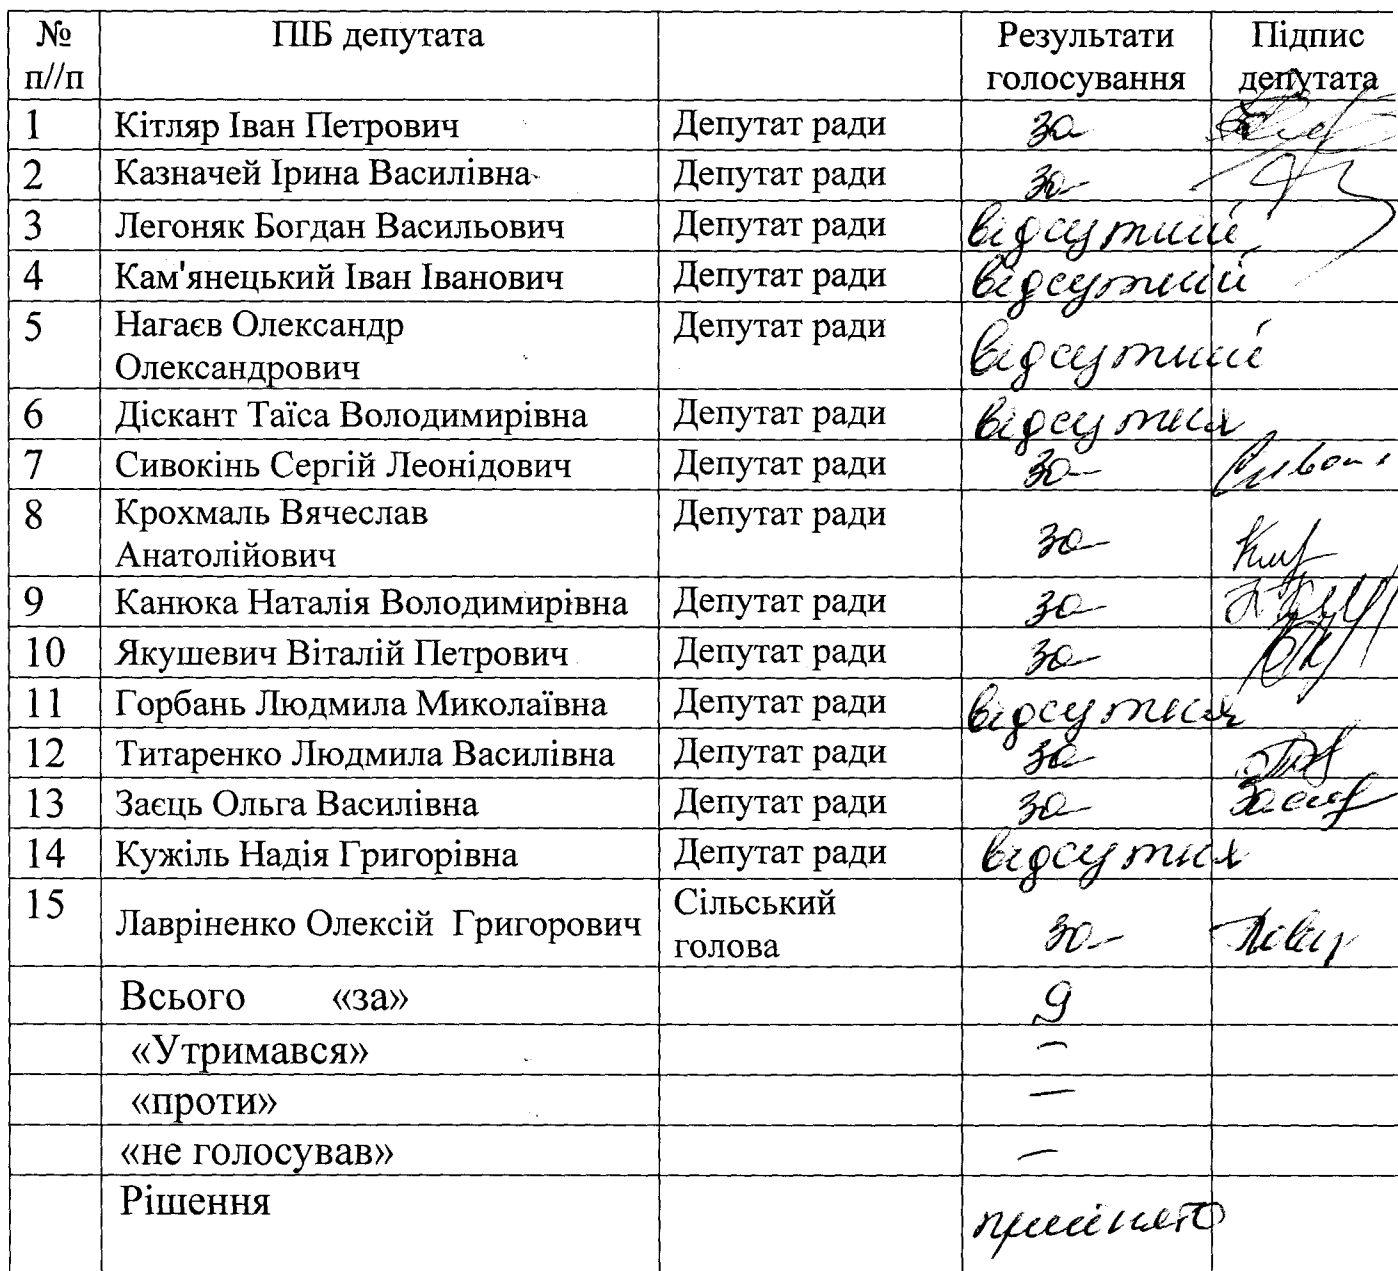 № ПІБ депутата Результати Підпис
п//п голосування депутата
1 Кітляр Іван Петрович Депутат ради за
2 Казначей Ірина Василівна Депутат ради за
3 Легоняк Богдан Васильович Депутат ради відсутній
4 Кам'янецький Іван Іванович Депутат ради відсутній
5 Нагаєв Олександр Депутат ради відсутній
Олександрович
6 Діскант Таїса Володимирівна Депутат ради відсутня
7 Сивокінь Сергій Леонідович Депутат ради за
8 Крохмаль Вячеслав Депутат ради за
Анатолійович
9 Канюка Наталія Володимирівна Депутат ради за
10 Якушевич Віталій Петрович Депутат ради за
11 Горбань Людмила Миколаївна Депутат ради відсутня
12 Титаренко Людмила Василівна Депутат ради за
13 Заєць Ольга Василівна Депутат ради за
14 Кужіль Надія Григорівна Депутат ради відсутня
15 Лавріненко Олексій Григорович Сільський за
голова
Всього «за» 9
«Утримався» –
«проти» –
«не голосував» –
Рішення прийнято